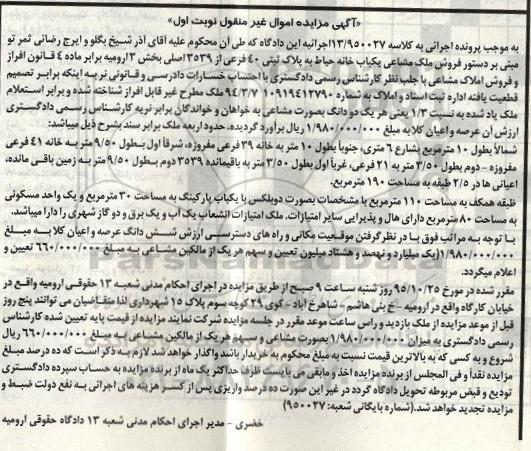 «آگهی مزایده اموال غیر منقول نوبت اول»
به موجب پرونده اجرائی به کلاسه ۱۳/۹۵۰۰۲۷اجرائیه این دادگاه که طی آن محکوم علیه آقای آذر شیخ بگلو و ایرج رضائی ثمر تو
مبنی بر دستور فروش ملک مشاعی یکباب خانه حیاط به پلاک ثبتی ۴۰ فرعی از ۳۵۳۹اصلی بخش ۳ ارومیه برابر ماده ۴ قانون افراز
و فروش املاک مشاعی با جلب نظر کارشناس رسمی دادگستری با احتساب خسارات دادرسی و قانونی نر به اینکه برابر تصمیم
قطعیت یافته اداره ثبت اسناد و املاک به شماره ۱۰۹۱۹۴۱۲۷۹۰ - ۹۴/۳/۷ ملک مطرح غیر قابل افراز شناخته شده و برابر استعلام
ملک یاد شده به نسبت ۱/۳ یعنی هر یک دو دانگ بصورت مشاعی به خواهان و خواندگان برابر نریه کارشناس رسمی دادگستری
ارزش آن عرصه و اعیان کلا به مبلغ ۱/۹۸۰/۰۰۰/۰۰۰ ریال برآورد گردیده. حدود اربعه ملک برابر سند بشرح ذیل میباشد:
شمالاً بطول ۱۰ متر مربع بشارع ۶ متری، جنوباً بطول ۱۰ متر به خانه ۳۹ فرعی مفروزه، شرقاً اول بطول ۹/۵۰ متر به خانه ۴۱ فرعی
مفروزه - دوم بطول ۳/۵۰ متر به ۲۱ فرعی، غرباً اول بطول ۳/۵۰ متر به باقیمانده ۳۵۳۹ دوم بطول ۹/۵۰ متر به زمین باقی مانده،
اعیانی ها در ۲/۵ طبقه به مساحت ۱۹۰ مترمربع.
طبقه همکف به مساحت ۱۱۰ مترمربع با مشخصات بصورت دوبلکس با یکباب پارکینگ به مساحت ۳۰ مترمربع و یک واحد مسکونی
به مساحت ۸۰ مترمربع دارای هال و پذیرایی سایر امتیازات. ملک امتیازات انشعاب یک آب و یک برق و دو گاز شهری را دارا میباشد.
با توجه به مراتب فوق با در نظر گرفتن موقعیت مکانی و راه های دسترسی ارزش شش دانگ عرصه و اعیان کلا به مبلغ
۱/۹۸۰/۰۰۰/۰۰۰(یک میلیارد و نهصد و هشتاد میلیون تعیین و سهم هر یک از مالکین مشاعی به مبلغ ۶۶۰/۰۰۰/۰۰۰ تعیین و
اعلام میگردد.
مقرر شده در مورخ ۹۵/۱۰/۲۵ روز شنبه ساعت ۹ صبح از طریق مزایده در اجرای احکام مدنی شعبه ۱۳ حقوقی ارومیه واقع در
خیابان کارگاه واقع در ارومیه - خ بنی هاشم - شاهرخ آباد - کوی ۲۹ کوچه سوم پلاک ۱۵ شهرداری لذا متقاضیان می توانند پنج روز
قبل از موعد مزایده از ملک بازدید و راس ساعت موعد مقرر در جلسه مزایده شرکت نمایند مزایده از قیمت پایه تعیین شده کارشناس
رسمی دادگستری به میزان ۱/۹۸۰/۰۰۰/۰۰۰ بصورت مشاعی و سهم هر یک از مالکین مشاعی به مبلغ ۶۶۰/۰۰۰/۰۰۰ ریال
شروع و به کسی که به بالاترین قیمت نسبت به مبلغ محکوم به خریدار باشد واگذار خواهد شد لازم به ذکر است که ده درصد مبلغ
مزایده نقداً و فی المجلس از برنده مزایده اخذ و مابقی می بایست ظرف حداکثر یک ماه از برنده مزایده به حساب سپرده دادگستری
تودیع و قبض مربوطه تحویل دادگاه گردد در غیر این صورت ده درصد واریزی پس از کسر هزینه های اجرائی به نفع دولت ضبط و
مزایده تجدید خواهد شد.(شماره بایگانی شعبه: ۹۵۰۰۲۷)
خضری - مدیر اجرای احکام مدنی شعبه ۱۳ دادگاه حقوقی ارومیه